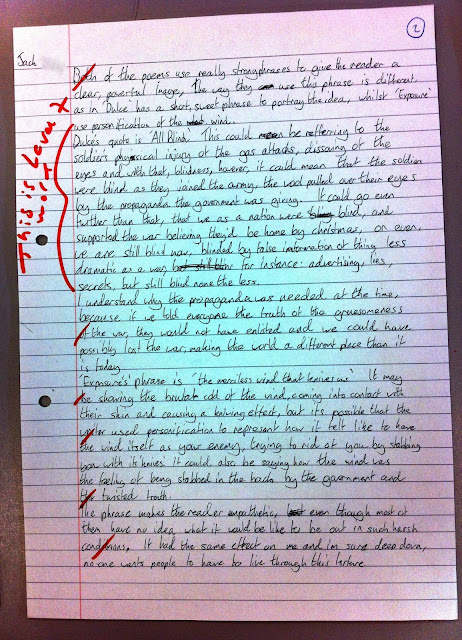 2
Jack
Both of the poems use really strong phrases to give the reader a
clear, powerful image. The way they use this phrase is different,
as in 'Dulce' has a short, sweet phrase to portray the idea, whilst 'Exposure'
use personification of the wind.
Dulce's quote is 'All Blind'. This could be reffering to the
soldiers physical injury of the gas attacks, dissolving of the
eyes and with that, blindness, however, it could mean that the soldier
were blind as they joined the army, the wool pulled over their eyes
by the propaganda the government was giving. It could go even
further than that, that we as a nation were blind, and
supported the war believing they'd be home by christmas, or even,
we are still blind now, blinded by false information of thing less
dramatic as a war, for instance: advertising, lies
secrets, but still blind none the less.
I understand why the propaganda was needed at the time,
because if we told everyone the truth of the gruesomeness
of the war, they would not have enlisted and we could have
possibly lost the war, making the world a different place than it
is today.
'Exposure's' phrase is 'the merciless wind that knive us'. It may
be showing the brutal cold of the wind, coming into contact with
their skin and causing a kniving effect, but its possible that the
writer used personification to represent how it felt like to have
the wind itself as your enemy, trying to rid of you by stabbing
you with its knives. It could also be saying how the wind was
the feeling of being stabbed in the back by the government and
twisted truth.
The phrase makes the reader empathetic, even though most of
them have no idea what it would be like to be out in such harsh
conditions. It had the same effect on me and im sure deep down,
no one wants people to have to live through this torture
This is Level 7
work